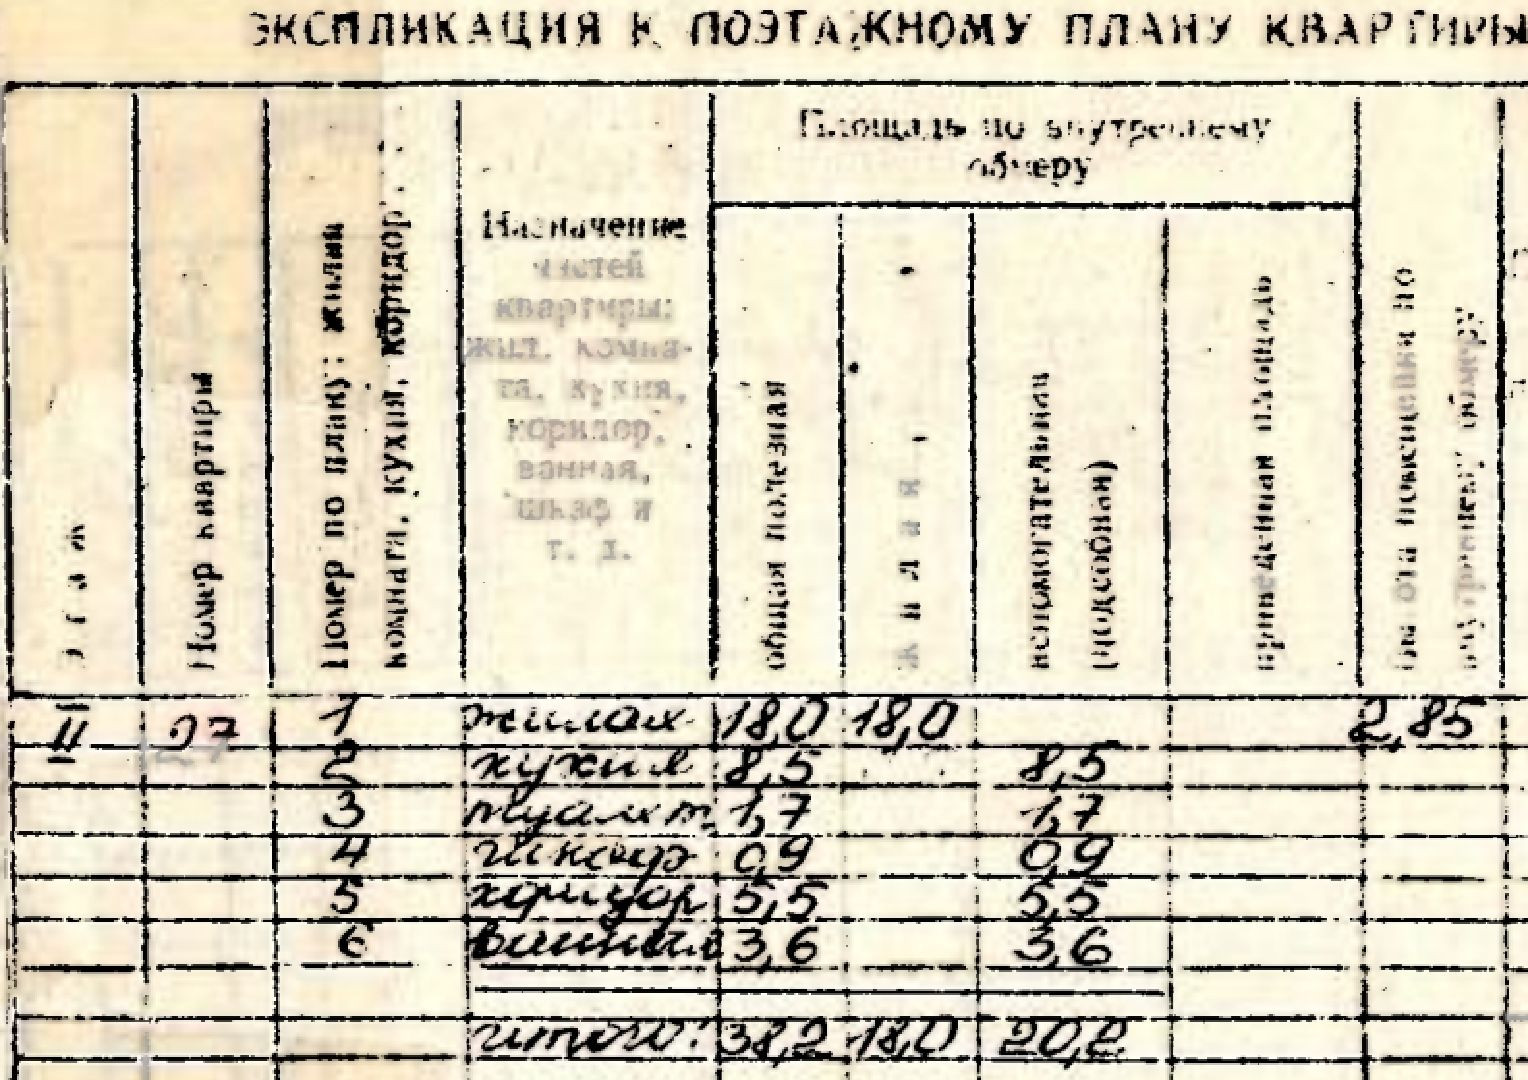 ЭКСПЛИКАЦИЯ К ПОЭТАЖНОМУ ПЛАНУ КВАРТИРЫ
Этаж
Номер квартиры
Номер по плану: жилая
комната, кухня, коридор
Назначение
частей
квартиры:
жил. комна-
та, кухня,
коридор,
ванная,
шкаф и
т. д.
Площадь по внутреннему
обмеру
общая полезная
жилая
вспомогательная
(подсобная)
приведенная площадь
Высота помещения по
внутреннему обмеру
II 27 1 жилая 18,0 18,0 2,85
2 кухня 8,5 8,5
3 туалет 1,7 1,7
4 шкаф 0,9 0,9
5 коридор 5,5 5,5
6 ванная 3,6 3,6
итого: 38,2 18,0 20,2